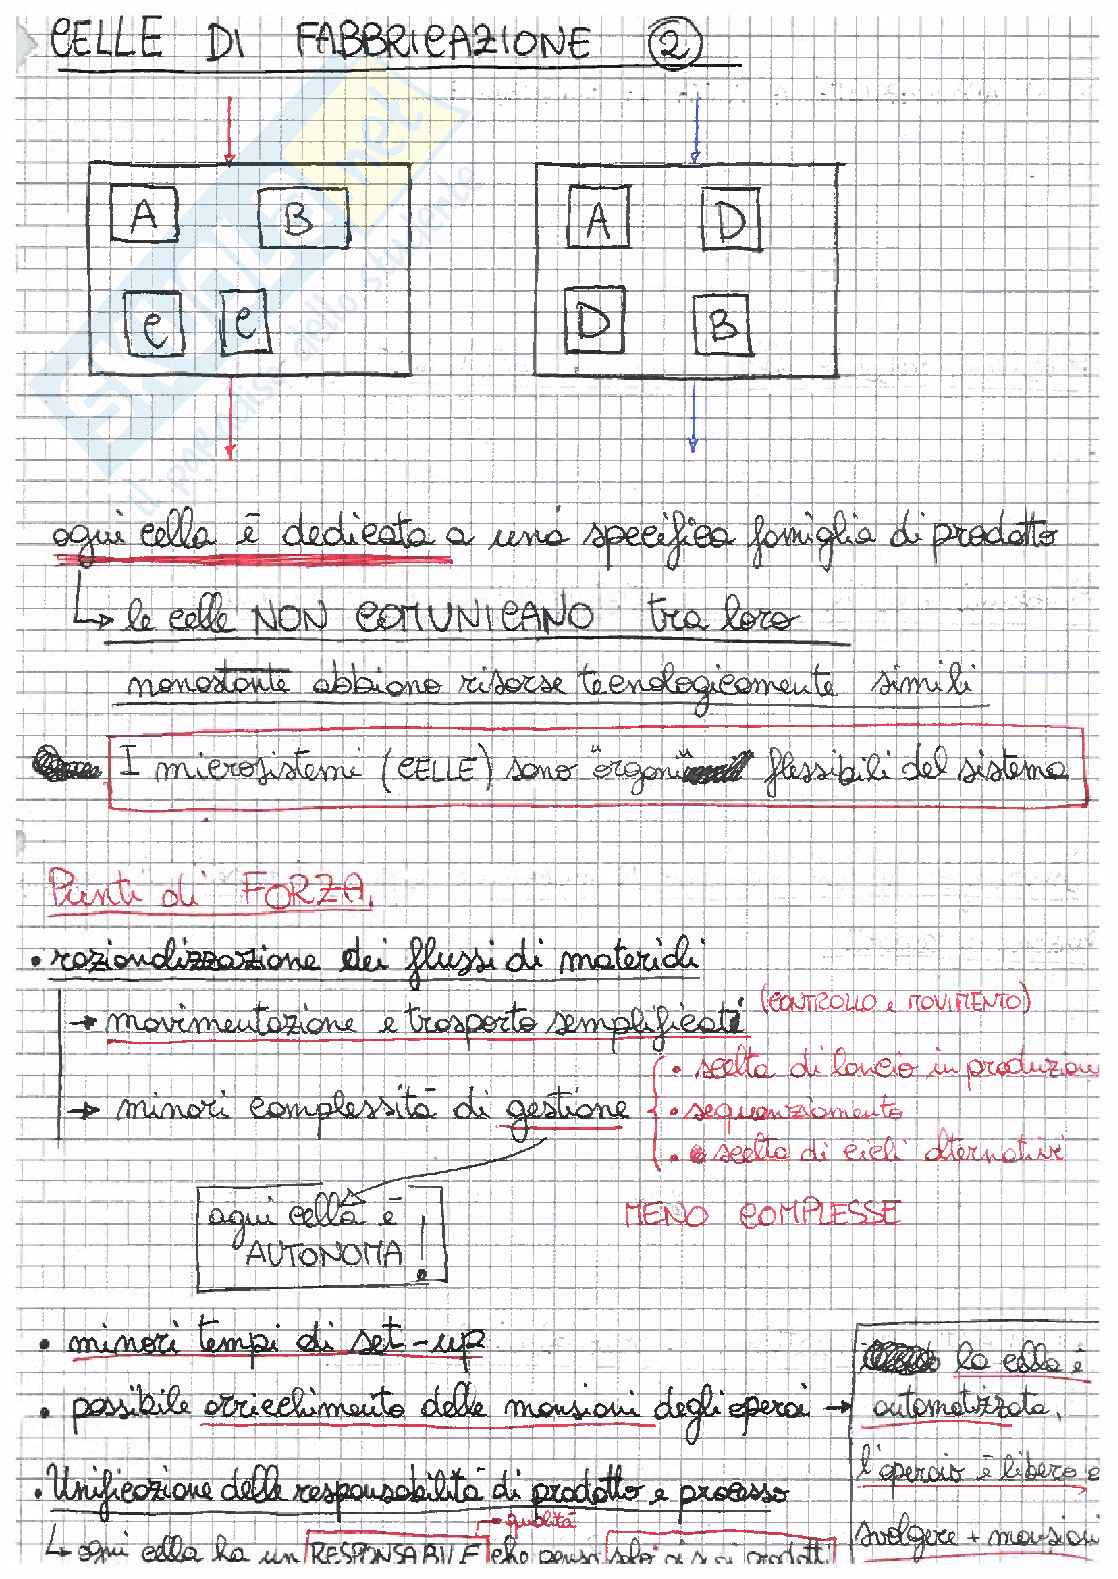 CELLE DI FABBRICAZIONE 2
A B
A D
C C
D B
Skuola.net
il paradiso dello studente
ogni cella è dedicata a una specifica famiglia di prodotto
le celle NON COMUNICANO tra loro
nonostante abbiano risorse tecnologicamente simili
I microsistemi (CELLE) sono "organi" flessibili del sistema
Punti di FORZA.
• razionalizzazione dei flussi di materiali
→ movimentazione e trasporto semplificati (CONTROLLO e MOVIMENTO)
• scelta di lancio in produzion
→ minori complessità di gestione
• sequenziamento
• scelta di cicli alternativi
ogni cella è
AUTONOMA !
MENO COMPLESSE
• minori tempi di set-up
la cella è
• possibile arricchimento delle mansioni degli operai →
automatizzata,
l'operaio è libero
• Unificazione delle responsabilità di prodotto e processo
• qualità
svolgere + mansioni
ogni cella ha un RESPONSABILE che pensa solo ai suoi prodotti